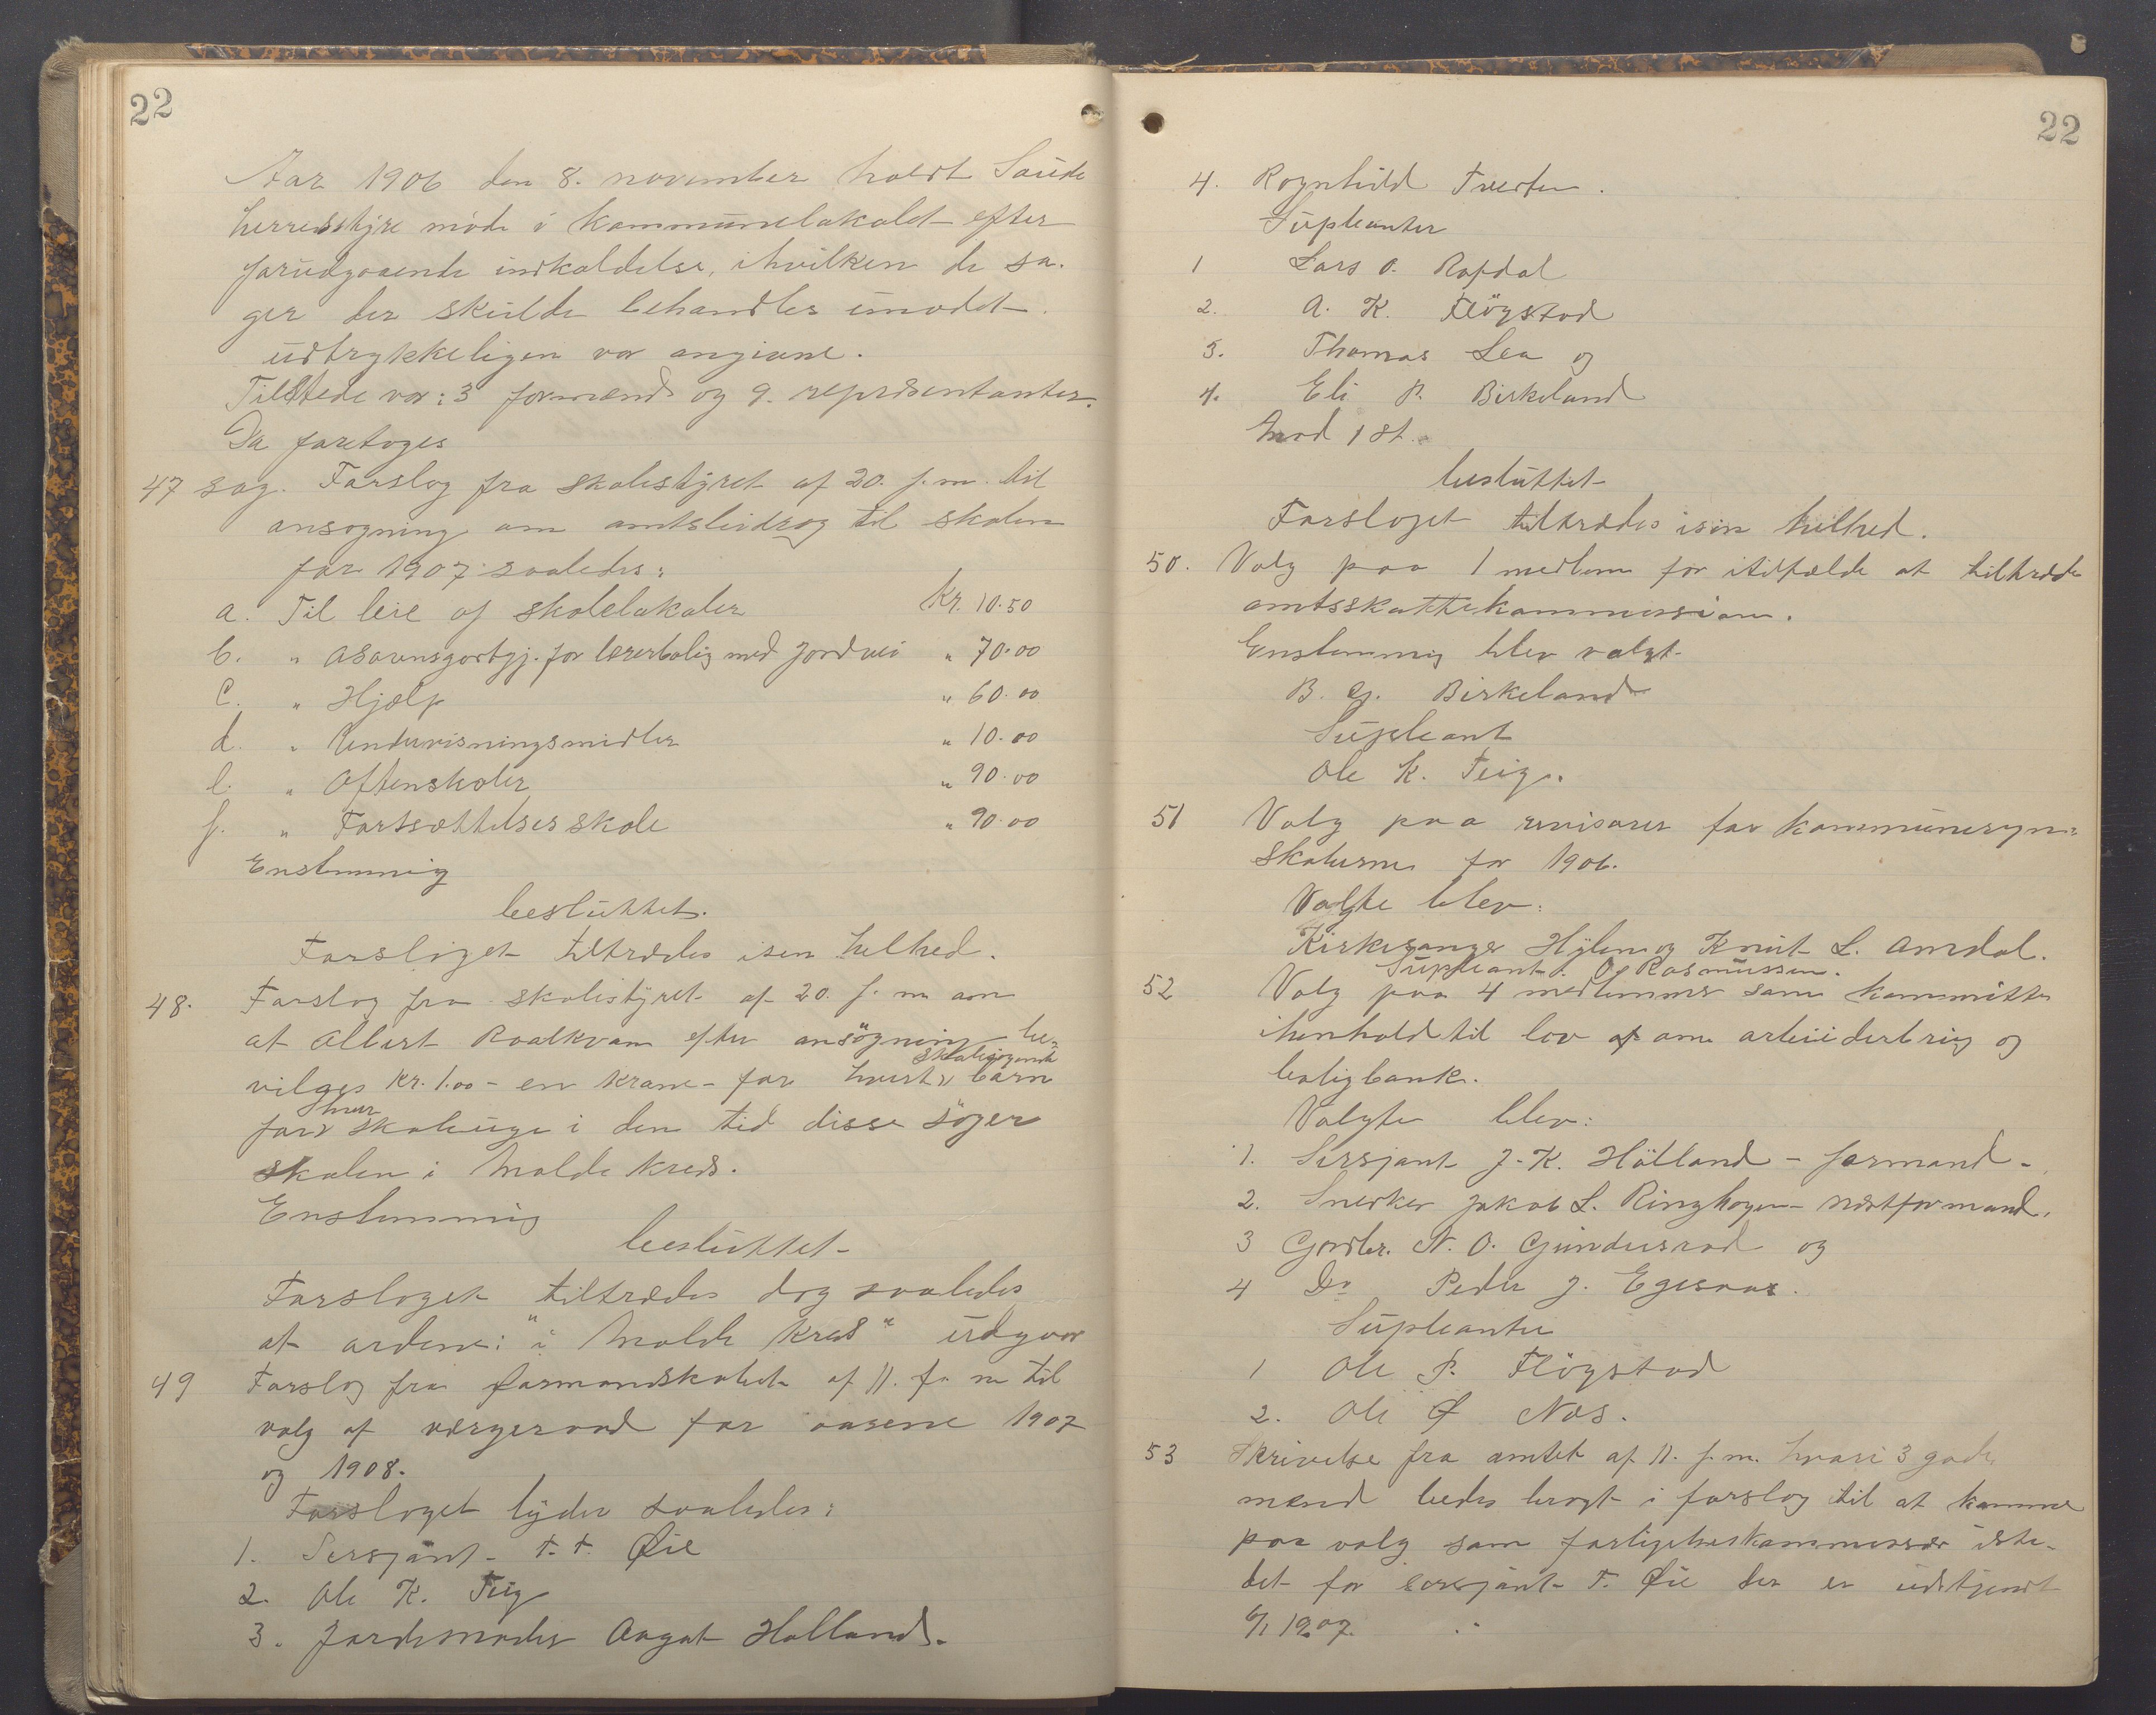 22
Aar 1906 den 8. november holdt Saude
herredsstyre møde i kommunelokalet efter
forudgaaende indkaldelse, ihvilken de sa-
ger der skulde behandles imødet
udtrykkeligen var angivne.
Tilstede var: 3 formænd og 9. repræsentanter.
Da foretoges
47 sag. Forslag fra skolestyret af 20. f.m. til
ansøgning om amtsbidrag til skolen
for 1907 saaledes:
a. Til leie af skolelokaler Kr. 10.50
b. " for lærerbolig med jordvei " 70.00
c. " Hjælp " 60.00
d. " Undervisningsmidler " 10.00
e. " Aftenskoler " 90.00
f. " Fortsættelsesskole " 90.00
Enstemmig
besluttet.
Forslaget tiltrædes isin helhed.
48. Forslag fra skolestyret af 20. f. m om
at Albert Roalkvam efter ansøgning be-
vilges kr. 1.00 - en krone - for hvert skolesøgende barn
for hver skoleuge i den tid disse søger
skolen i Molde kreds.
Enstemmig
besluttet
Forslaget tiltrædes dog saaledes
at ordene: "i Molde kreds" udgaar
49 Forslag fra formandskabet af 11. f. m til
valg af værgeraad for aarene 1907
og 1908.
Forslaget lyder saaledes:
1. Sersjant T. T. Øie
2. Ole K. Teig
3. Jordemoder Aagat Holland.
22
4. Ragnhild Tveden.
Supleanter
1 Lars O. Rafdal
2. A. K. Fløgstad
3. Thomas Lea og
4. Eli P. Birkeland
Mod 1 st.
besluttet
Forslaget tiltrædes isin helhed.
50. Valg paa 1 medlem for itilfælde at tiltræde
amtsskattekommissionen.
Enstemmig blev valgt
B. G. Birkeland
Supleant
Ole K. Teig.
51 Valg paa revisorer for kommuneregn-
skaberne for 1906.
Valgte blev:
Kirkesanger Hylen og Knut L. Amdal.
Supleant: O. Rasmussen.
52 Valg paa 4 medlemmer som kommitte
ihenhold til lov af om arbeiderbrug og
boligbank.
Valgte blev:
1. Sersjant J. K. Hølland - formand -
2. Snedker Jakob L. Ringhagen - næstformand.
3 Gardbr. N. O. Gundersrod og
4 Do Peder J. Egesaas.
Supleanter
1 Ole P. Fløgstad
2. Ole Ø Næs.
53 Skrivelse fra amtet af 11. f. m. hvori 3 gode
mænd bedes bragt i forslag til at komme
paa valg som forligelseskommissær iste-
det for sersjant T. Øie der er udtjendt
1/1 1907.